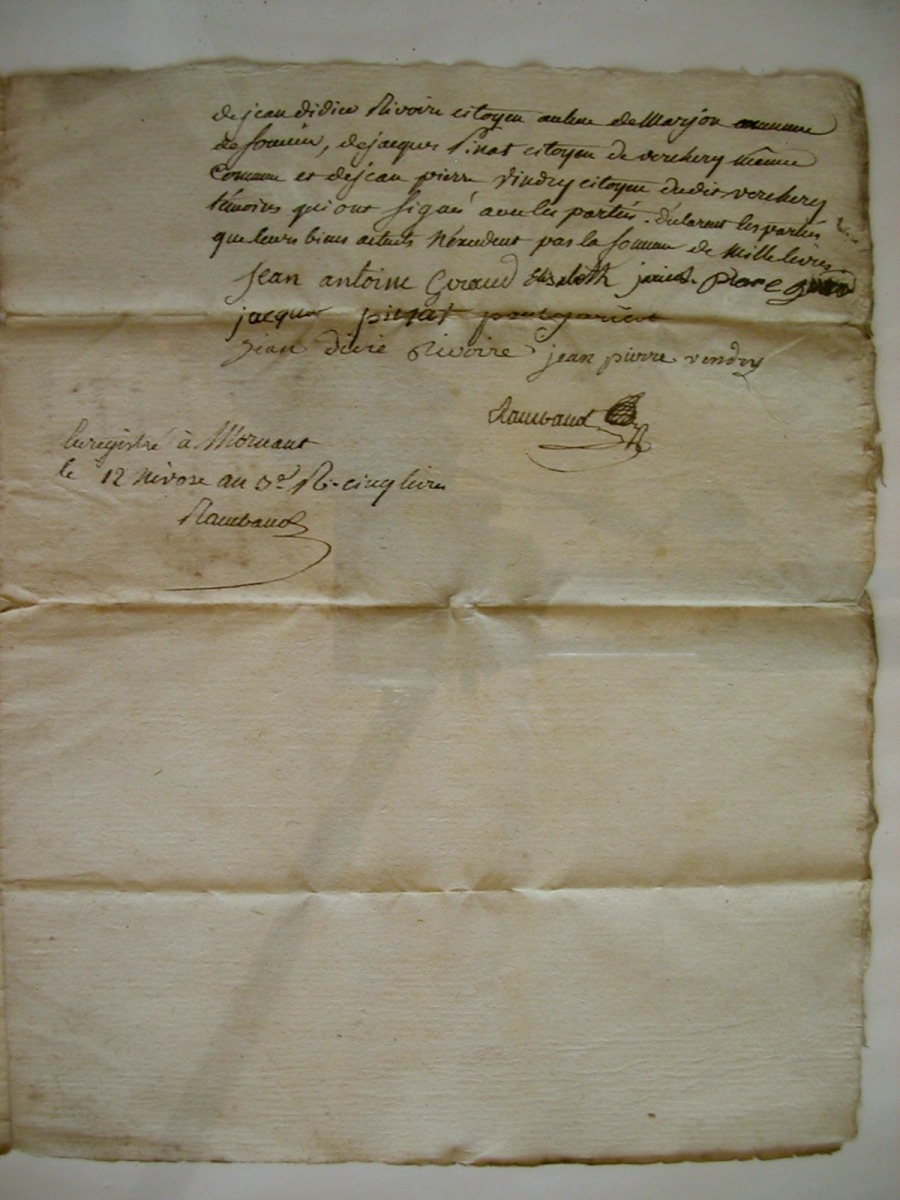 de jean didier Rivoire citoyen au lieu de Marjon commune
de soucieu, de jacques Pinat citoyen de verchery même
Commune et de jean pierre Vindry citoyen dudit verchery
témoins qui ont signé avec les parties. déclarent les parties
que leurs biens actuels n'éxcedent pas la somme de Mille livres
jean antoine Giraud Elisabeth Piere
jacque pinat
jean didié Rivoire jean pierre vendry
Rambaud
Enregistré à Mornant
le 12 nivose an 3e R. cinq livres
Rambaud